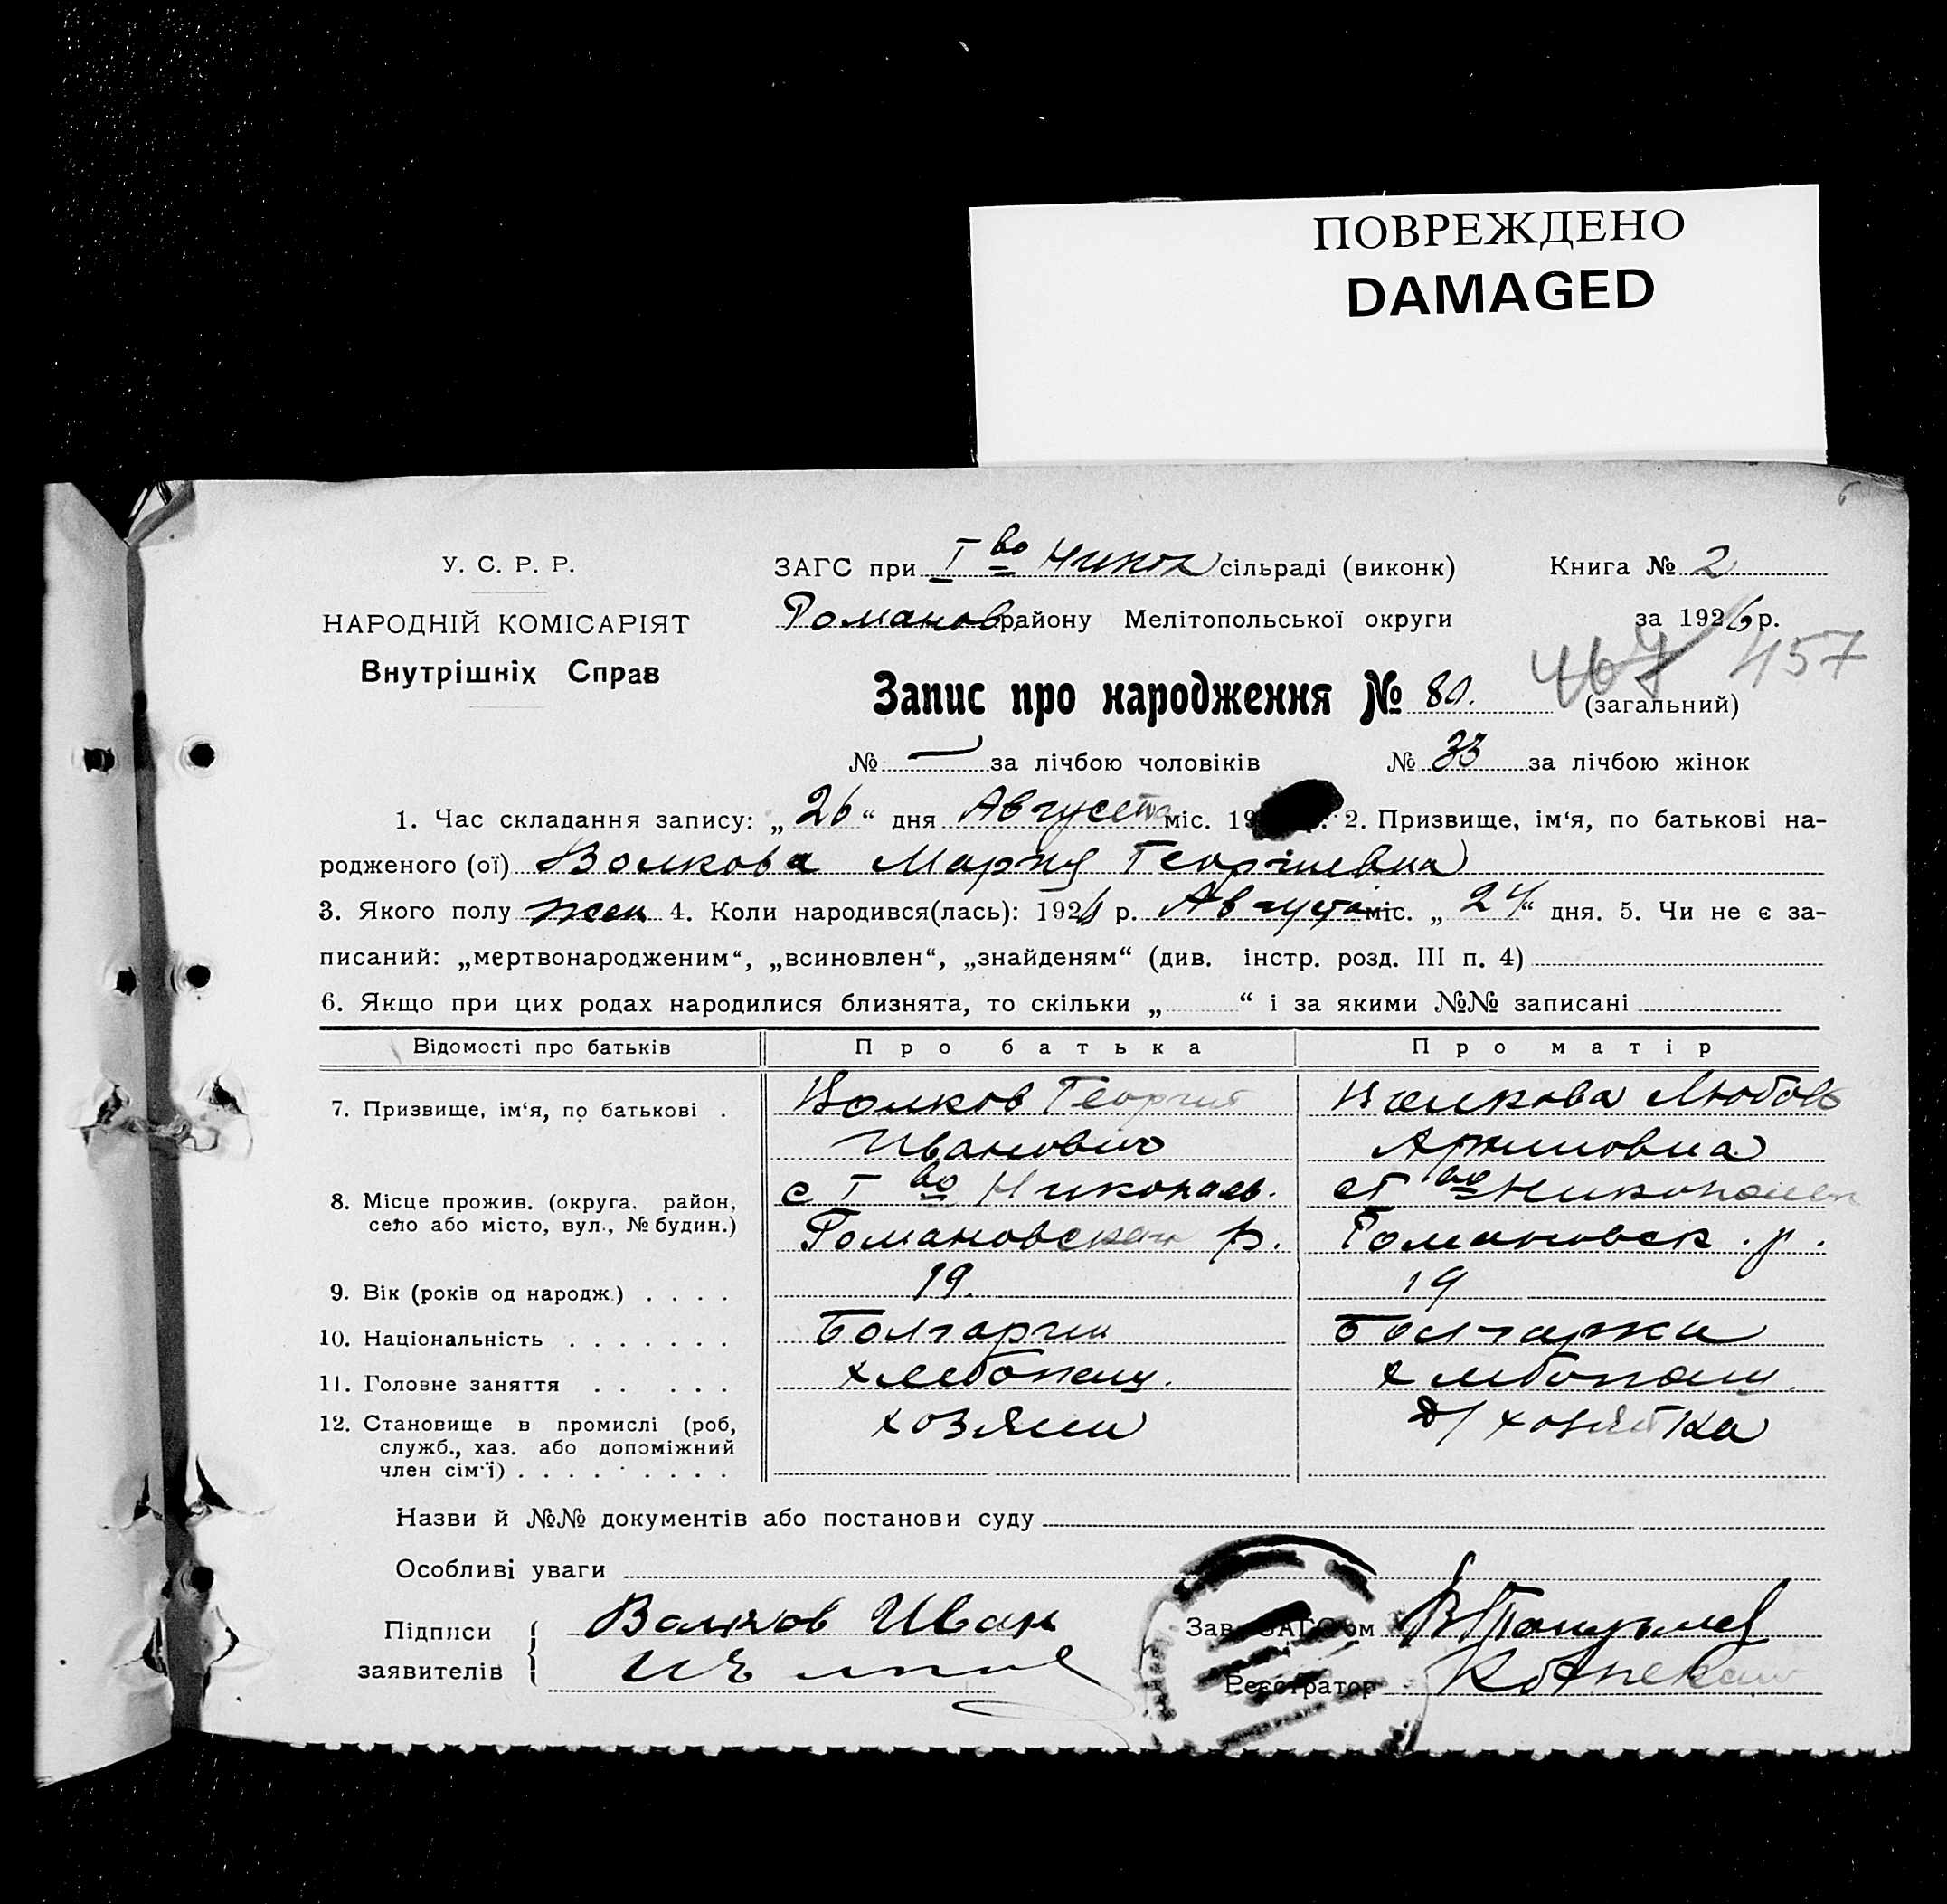 ПОВРЕЖДЕНО
DAMAGED
У. С. Р. Р.
НАРОДНІЙ КОМІСАРІЯТ
Внутрішніх Справ
ЗАГС при I во Никол сільраді (виконк)
Романов району Мелітопольської округи
Книга № 2
за 1926 р.
467 457
Запис про народження № 80. (загальний)
№ — за лічбою чоловіків № 33 за лічбою жінок
1. Час складання запису: „ 26 “ дня Августа міс. 19 2. Призвище, ім‘я, по батькові на-
родженого (ої) Волкова Мария Георгиевна
3. Якого полу жен 4. Коли народився(лась): 1926 р. Августа міс. „ 24 “ дня. 5. Чи не є за-
писаний: „мертвонародженим“, „всиновлен“, „знайденям“ (див. інстр. розд. III п. 4)
6. Якщо при цих родах народилися близнята, то скільки „ “ і за якими №№ записані
Відомості про батьків Про батька Про матір
7. Призвище, ім‘я, по батькові . Волков Георгий Волкова Любовь
Иванович
8. Місце прожив. (округа. район, село або місто, вул., № будин.) с I во Николаев. с I во
Романовского р. Романовск. р.
9. Вік (років од народж.) . . . . 19. 19
10. Національність . . . . . . . Болгарин Болгарка
11. Головне заняття . . . . . хлебопаш. хлебопаш.
12. Становище в промислі (роб, служб., хаз. або допоміжний член сім‘ї) . . . . . . . . . хозяин д/ хозяйка
Назви й №№ документів або постанови суду
Особливі уваги
Підписи заявителів Волков Иван
Зав. ЗАГС‘ом
Реєстратор